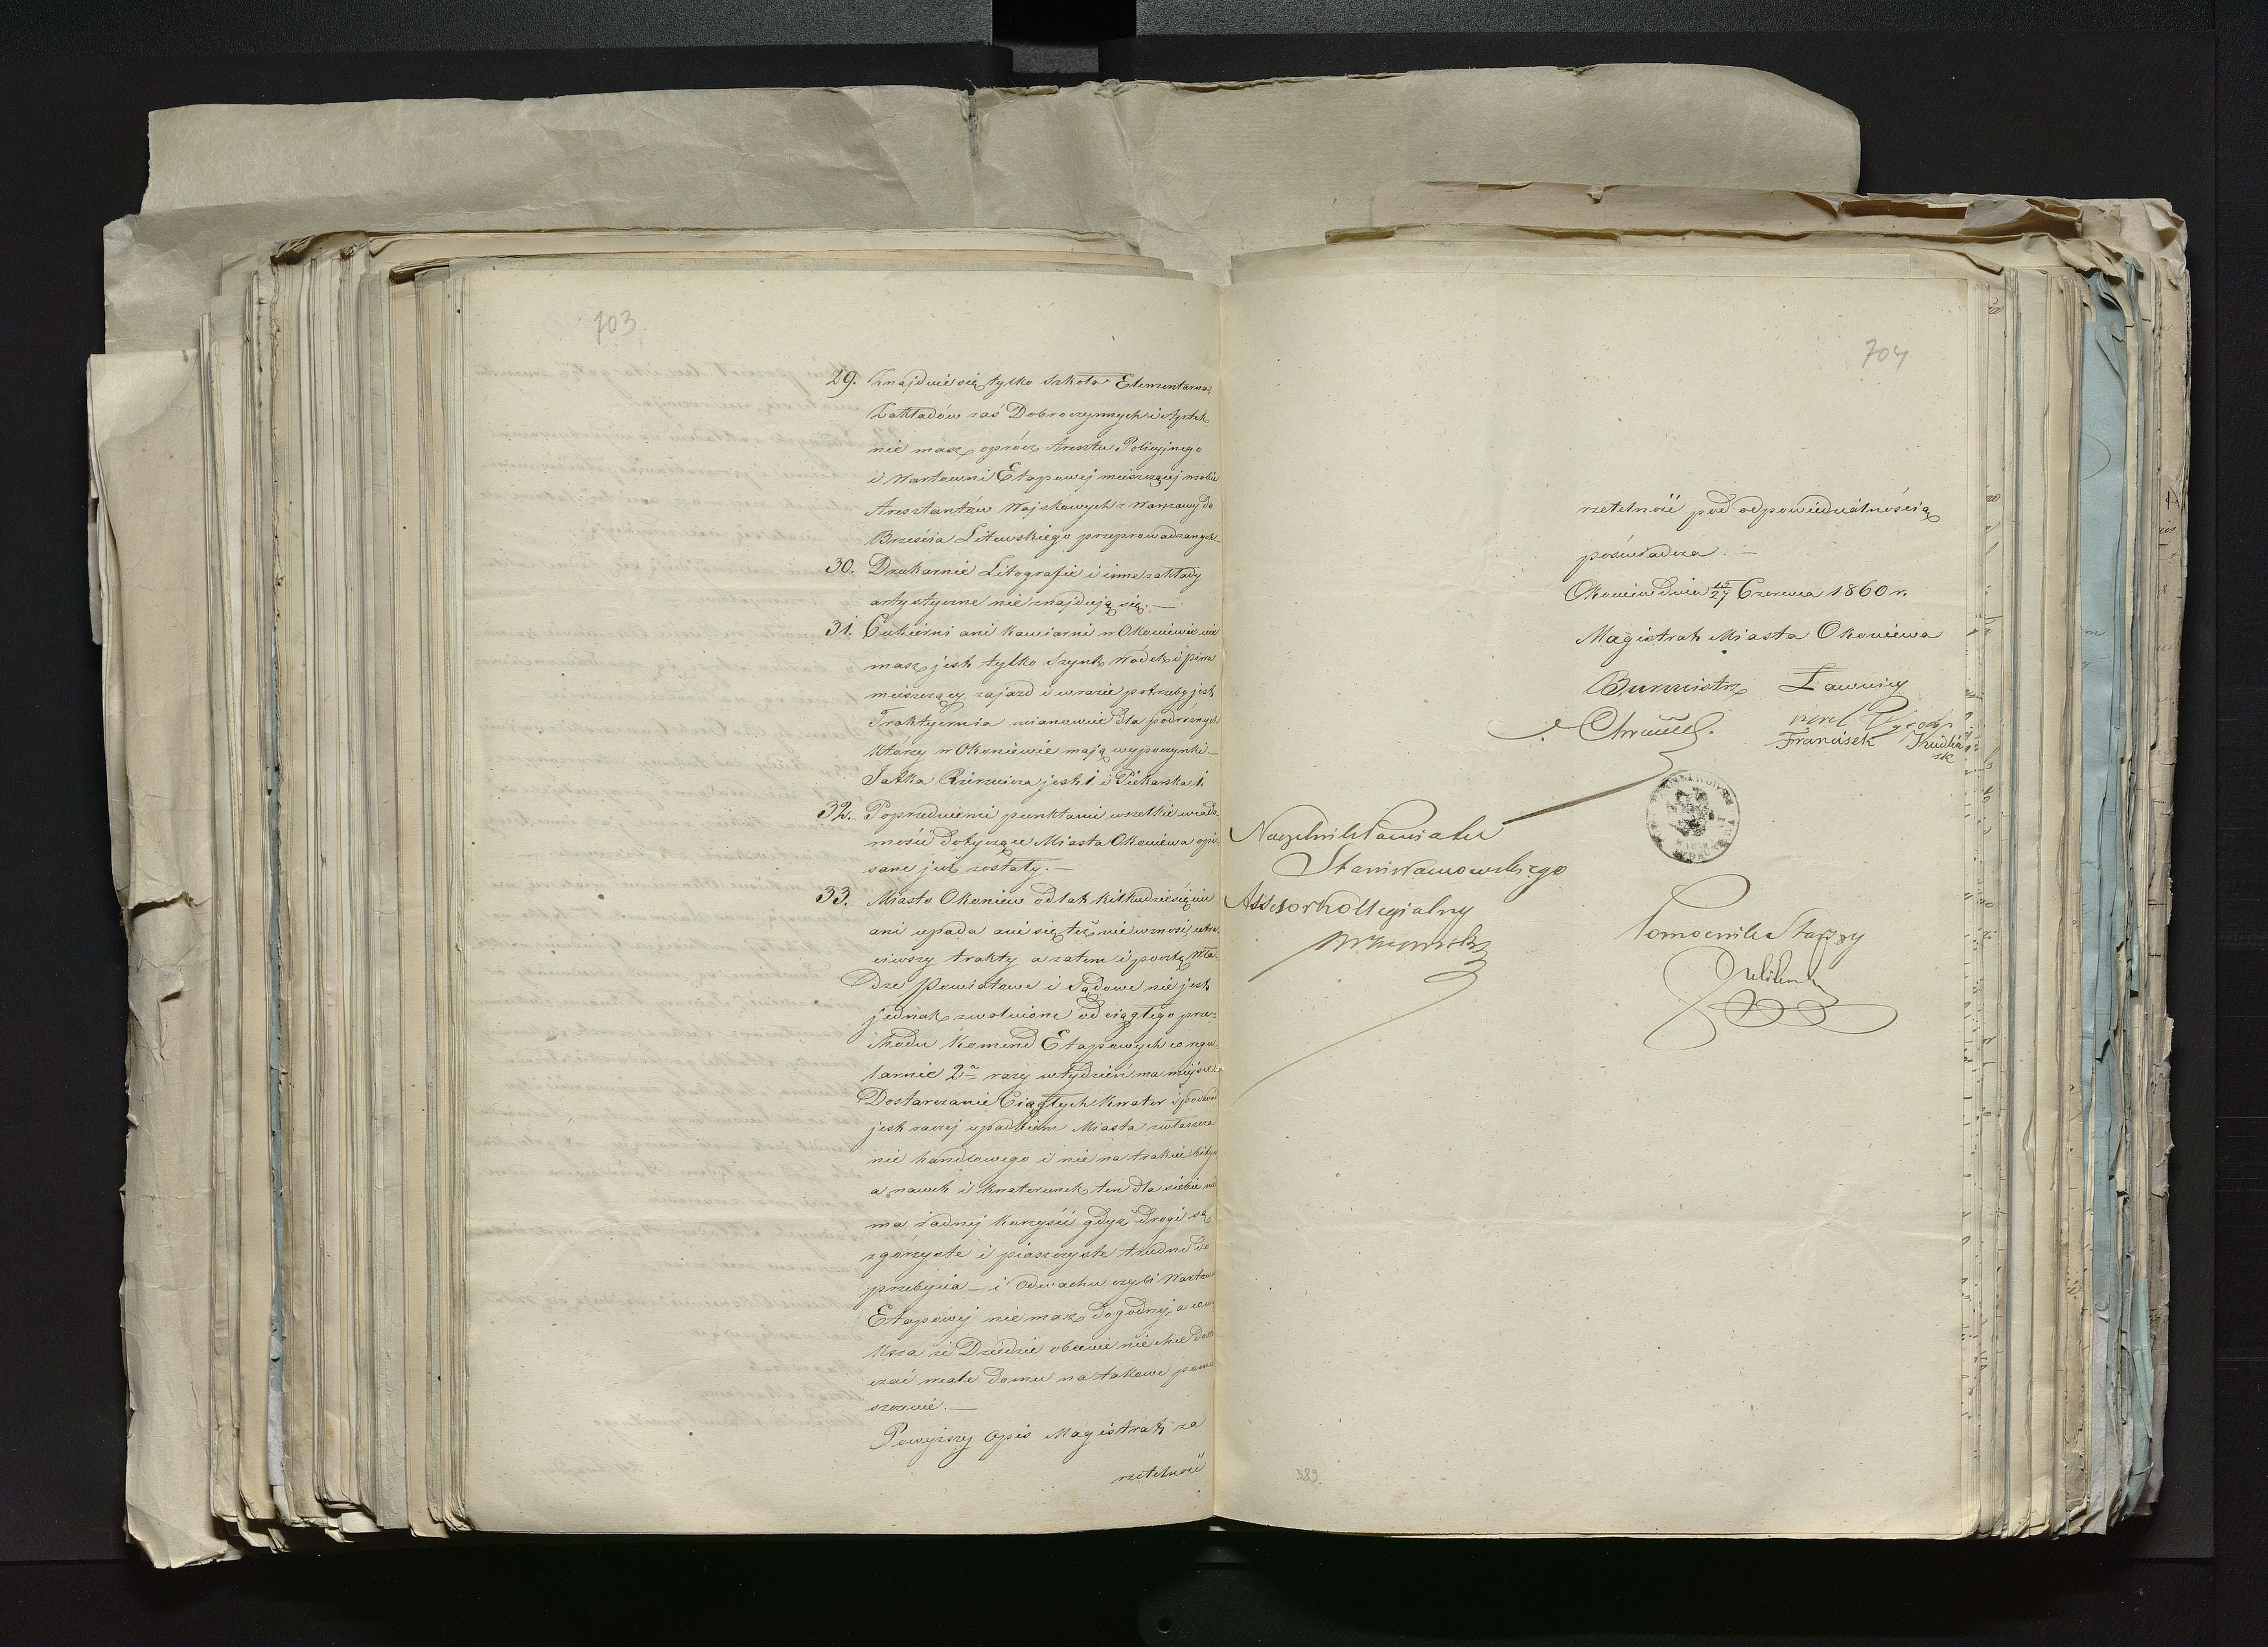 703
29. Znajduie się tylko Szkoła Elementarna,
Zakładów zaś Dobroczynnych i Aptek
nie masz oprócz Aresztu Policyjnego
i Wartowni Etapowej mieszczącej w sobie
Aresztantów Wojskowych z Warszawy do
Brześcia Litewskiego przeprowadzanych.—
30. Drukarnie Litografie i inne zakłady
artystyczne nie znajdują się.—
31. Cukierni ani Kawiarni w Okuniewie nie
masz jest tylko Szynk Wódek i piwa
mieszczący zajazd i w razie potrzeby jest
Traktyernia mianowicie dla podróżnych
którzy w Okoniewie mają wypoczynki—
Jatka Rzeznicza jest 1. i Piekarska 1.
32. Poprzedniemi punktami wszelkie wiado-
mości dotyczące Miasta Okoniewa opi-
sane już zostały.—
33. Miasto Okoniew od lat kilkudziesięciu
ani upada ani się też nie wznosi, utra-
ciwszy trakty a zatem i pocztę Wła-
dze Powiatowe i Sądowe nie jest
jednak zwolnione od ciągłego prze-
chodu Komend Etapowych co regu-
larnie 2a razy w tydzień ma miejsce
Dostarczanie Ciągłych Kwater i podwód
jest raczej upadkiem Miasta zwłaszcza
nie handlowego i nie na trakcie bitym
a nawet i kwaterunek ten dla siebie nie
ma żadnej korzyści gdyż drogi są
zgórzyste i piaszczyste trudne do
przebycia — i Odwachu czyli Wartowni
Etapowej nie masz dogodnej, a
ksza że Dziedzic obecnie nie chce
czać wcale domu na takowe pomie
szczenie.—
Powyższy Opis Magistrat za
rzetelność
704
rzetelność pod odpowiedzialnością
poświadcza.—
Okoniew dnia 15/27 Czerwca 1860 r.
Magistrat Miasta Okoniewa
Burmistrz Ławnicy
Franciszek
Naczelnik Powiatu
Stanisławowskiego
Assesor Kollegialny
Pomocnik Starszy
389.